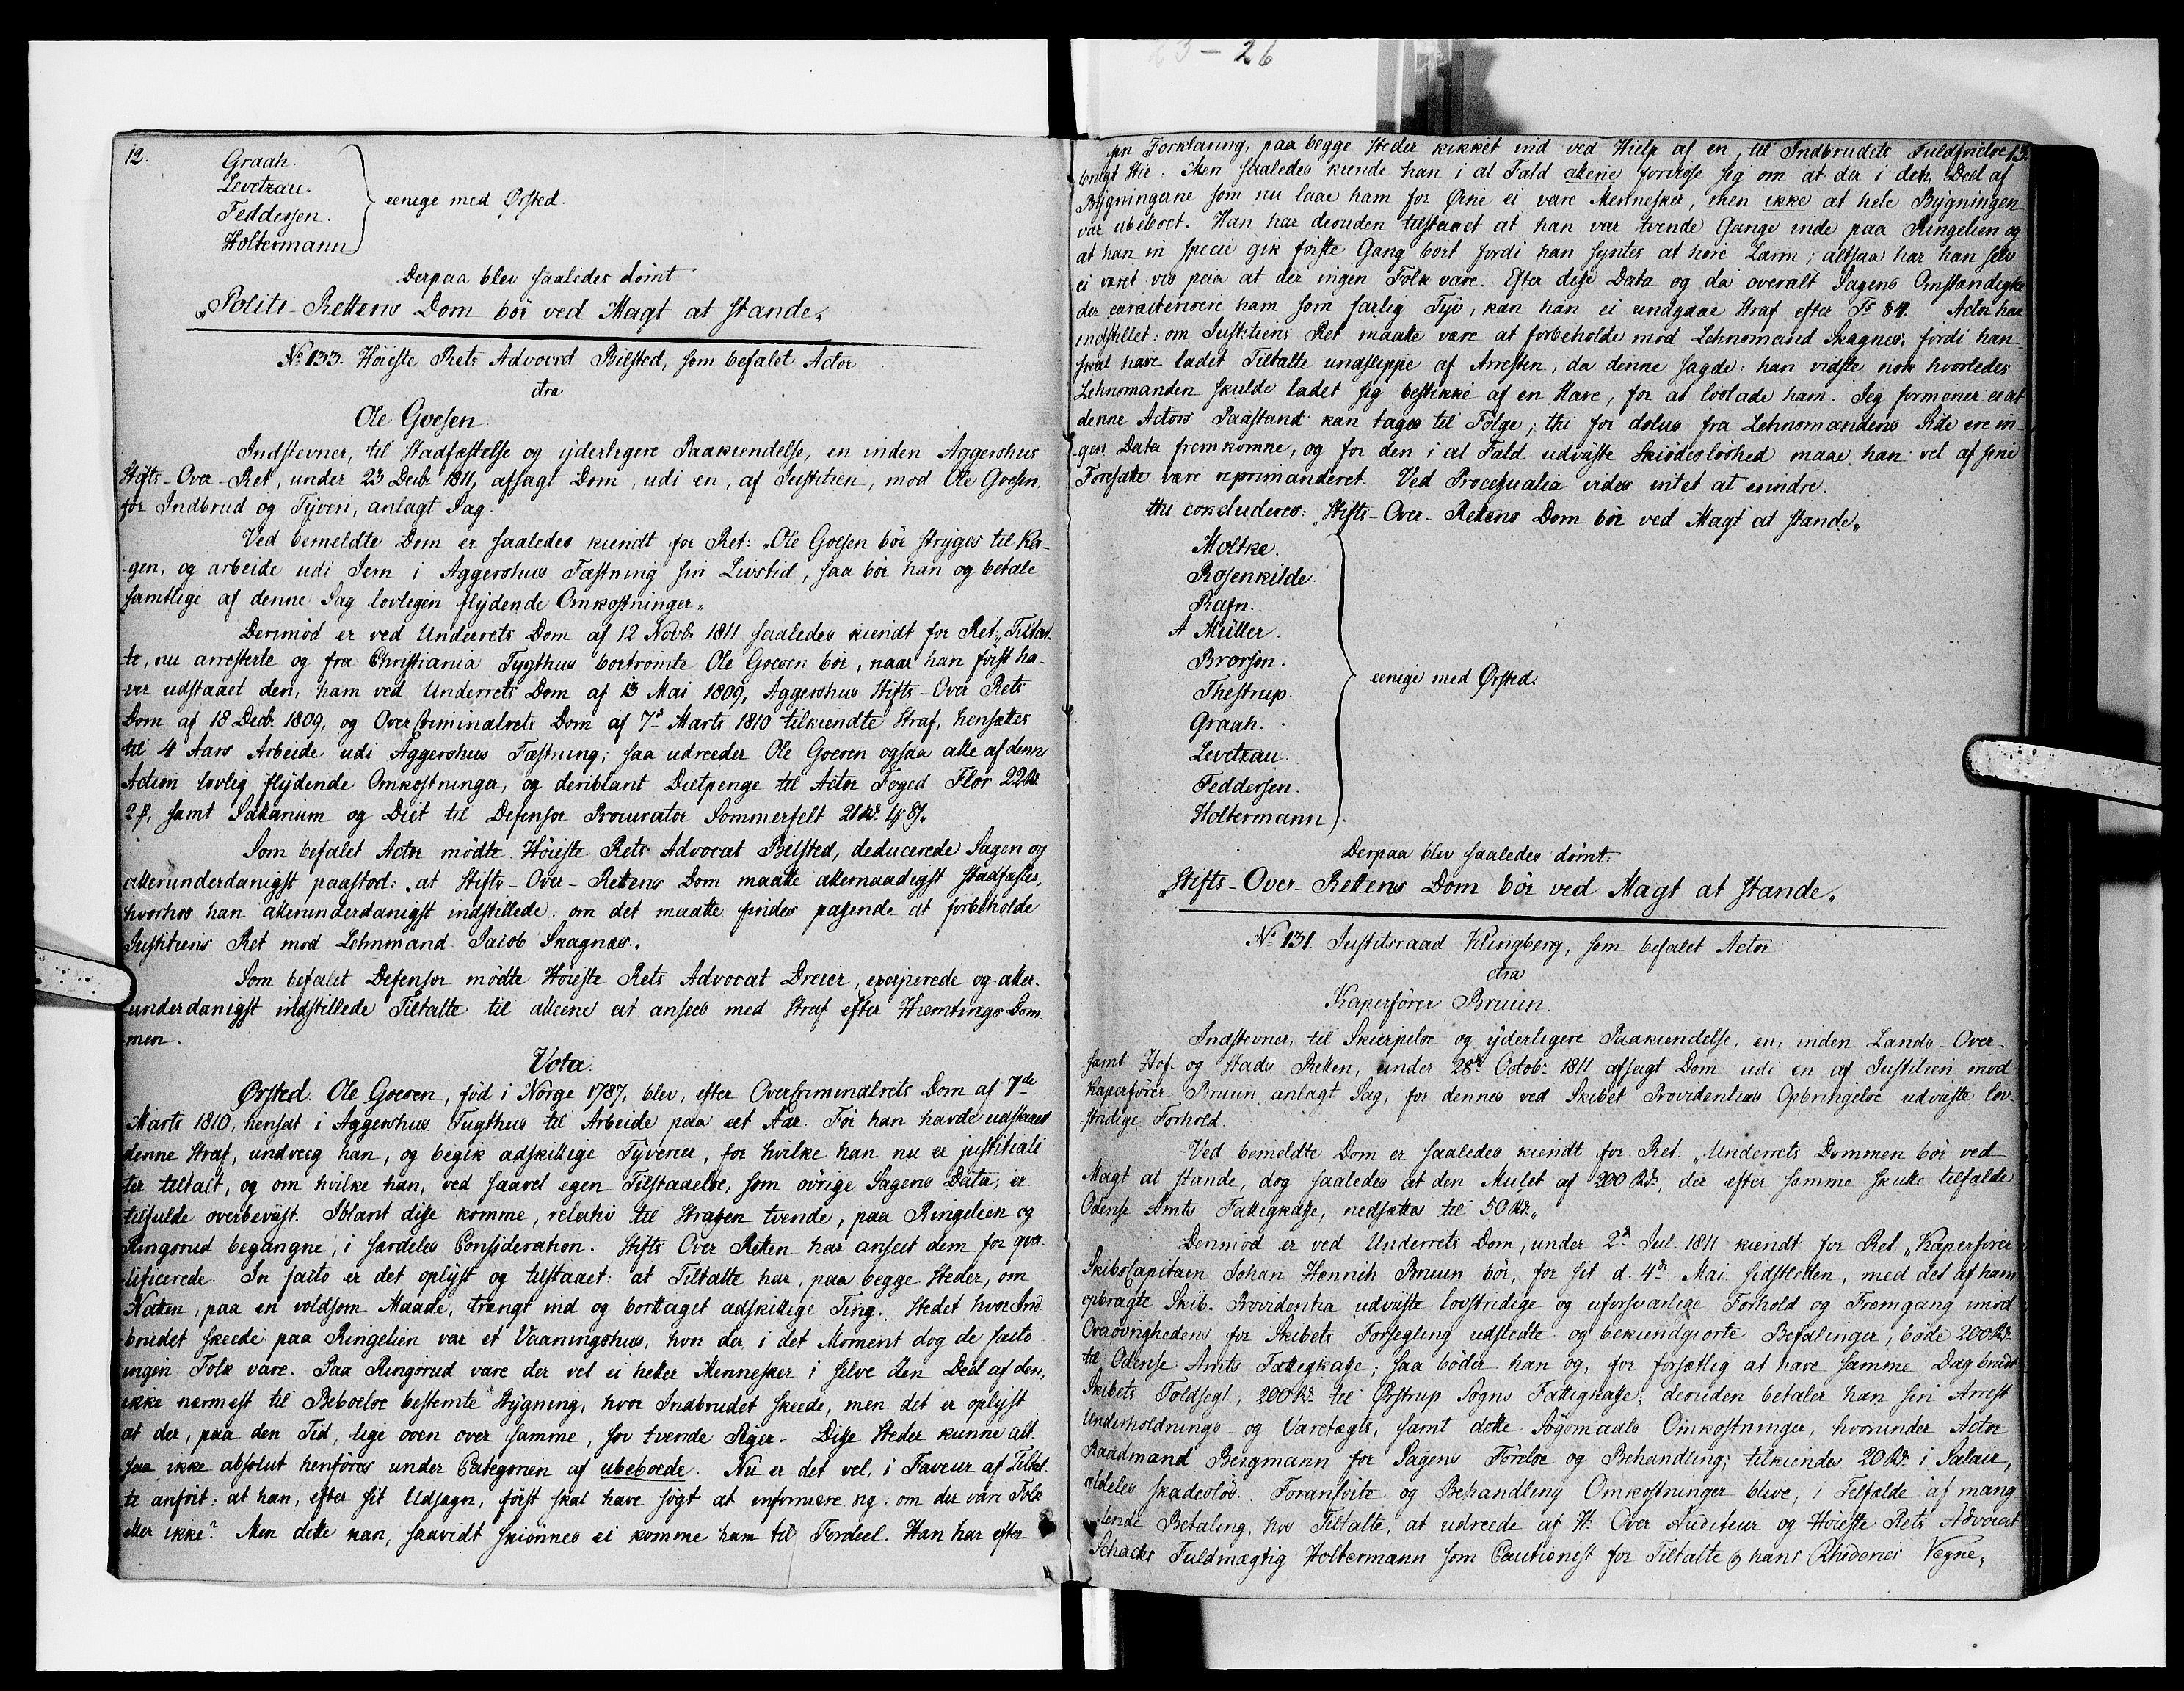 23-26
12.
Graah.
Levetzau.
Feddersen.
Holtermann
eenige med Ørsted.
Derpaa blev saaledes dømt
„Politi-Rettens Dom bör ved Magt at stande„
No 133. Höieste Rets Advocat Bilsted, som befalet Actor
ctra
Ole Goesen
Indstevner, til Stadfæstelse og yderligere Paakiendelse, en inden Aggershus
Stifts-Over-Ret, under 23 Decbr 1811, afsagt Dom, udi en, af Justitien, mod Ole Goesen,
for Indbrud og Tyveri, anlagt Sag.
Ved bemeldte Dom er saaledes kiendt for Ret: „Ole Goesen bör stryges til Ka-
-gen, og arbeide udi Jern i Aggershus Fæstning sin Livstid, saa bör han og betale
samtlige af denne Sag lovligen flydende Omkostninger„
Derimod er ved Underrets Dom af 12 Novbr 1811 saaledes kiendt for Ret: „Tiltal-
-te, nu arresterte og fra Christiania Tygthus bortrömte Ole Goesen bör, naar han först ha-
-ver udstaaet den, ham ved Underrets Dom af 13 Mai 1809, Aggershus Stifts-Over Rets
Dom af 18 Decbr 1809, og OverCriminalrets Dom af 7de Marts 1810 tilkiendte Straf, hensættes
til 4 Aars Arbeide udi Aggershus Fæstning; saa udreeder Ole Goesen ogsaa alle af denne
Action lovlig flydende Omkostninger, og deriblant Dietpenge til Actor Foged Flor 22 Rd
2 ß, samt Sallarium og Diet til Defensor Procurator Sommerfelt 21 Rd. 4 ß 8 ß.
Som befalet Actor mödte Höieste Rets Advocat Bilsted, deducerede Sagen og
allerunderdanigst paastod: „at Stifts-Over-Rettens Dom maatte allernaadigst stadfæstes,
hvorhos han allerunderdanigst indstillede: om det maatte findes passende at forbeholde
Justitiens Ret mod Lehnsmand Jacob Skagnæs„
Som befalet Defensor mödte Höieste Rets Advocat Dreier, exciperede og aller-
-underdanigst indstillede Tiltalte til alleene at ansees med Straf efter Hiemtings Dom-
-men.
Vota.
Ørsted. Ole Goesen, föd i Norge 1787, blev, efter OverCriminalrets Dom af 7de
Marts 1810, hensat i Aggershus Tugthus til Arbeide paa eet Aar. För han havde udstaaet
denne Straf, undveeg han, og begik adskillige Tyverier, for hvilke han nu er justitiali-
ter tiltalt, og om hvilke han, ved saavel egen Tilstaaelse, som övrige Sagens Data, er
tilfulde overbeviist. Iblant disse komme, relativ til Straffen tvende, paa Ringelien og
Ringsrud begangne, i særdeles Consideration. Stifts Over Retten har anseet dem for qva-
lificerede. In facto er det oplyst og tilstaaet: at Tiltalte har, paa begge Steder, om
Natten, paa en voldsom Maade, trængt ind og borttaget adskillige Ting. Stedet hvor Ind-
brudet skeede paa Ringelien var et Vaaningshus, hvor der i det Moment dog de facto
ingen Folk vare. Paa Ringsrud vare der vel ei heller Mennesker i selve den Deel af den,
ikke nærmest til Beboelse bestemte Bygning, hvor Indbrudet skeede, men det er oplyst
at der, paa den Tid, lige oven over samme, sov tvende Piger. Disse Steder kunne alt-
saa ikke absolut henföres under Categorien af ubeboede. Nu er det vel, i Faveur af Tiltal-
te anfört: at han, efter sit Udsagn, först skal have sögt at informere sig om der vare Folk
eller ikke? Men dette kan, saavidt skiönnes ei komme ham til Fordeel. Han har efter
13.
sin Forklaring, paa begge Steder kikket ind ved Hielp af en, til Indbrudets Fuldförelse
brugt Stie. Men saaledes kunde han i al Fald allene forvisse sig om at der i den Deel af
Bygningerne som nu laae ham for Øine ei vare Mennesker, men ikke at hele Bygningen
var ubeboet. Han har desuden tilstaaet at han var tvende Gange inde paa Ringelien og
at han in specie gik förste Gang bort fordi han syntes at höre Larm; altsaa har han selv
ei været vis paa at der ingen Folk vare. Efter disse Data og da overalt Sagens Omstændighe-
der caracteriserer ham som farlig Tyv, kan han ei undgaae Straf efter Actor har
indstillet: om Justitiens Ret maatte være at forbeholde mod Lehnsmand Skagnes, fordi han
skal have ladet Tiltalte undslippe af Arresten, da denne sagde: han vidste nok hvorledes
Lehnsmanden skulde ladet sig bestikke af en Hare, for at löslade ham. Jeg formener ei at
denne Actors Paastand kan tages til Fölge; thi for dolus fra Lehnsmandens Side ere in-
-gen Data fremkomne, og for den i al Fald udviiste Skiödeslöshed maae han vel af sine
Foresatte være reprimanderet. Ved Processualia vides intet at erindre.
thi concluderes: „Stifts-Over-Rettens Dom bör ved Magt at stande„
Moltke.
Rosenkilde.
Rafn.
A Müller.
Brorson.
Thestrup.
Graah.
Levetzau.
Feddersen.
Holtermann
eenige med Ørsted.
Derpaa blev saaledes dömt.
„Stifts-Over-Rettens Dom bör ved Magt at stande„
No 131. Justitsraad Klingberg, som befalet Actor
ctra
Kaperförer Bruun.
Indstevner, til Skierpelse og yderligere Paakiendelse, en, inden Lands-Over-
samt Hof- og Stads Retten, under 28de Octobr 1811 afsagt Dom udi en af Justitien mod
Kaperförer Bruun anlagt Sag, for dennes ved Skibet Providentias Opbringelse udviiste lov-
stridige Forhold.
Ved bemeldte Dom er saaledes kiendt for Ret. „Underrets Dommen bör ved
Magt at stande, dog saaledes at den Mulct af 200 Rdr, der efter samme skulle tilfalde
Odense Amts Fattigkasse, nedsættes til 50 Rdr„
Derimod er ved Underrets Dom, under 2de Jul. 1811 kiendt for Ret „Kaperförer
SkibsCapitaen Johan Henrich Bruun bör, for sit d. 4de Mai sidstleden, med det af ham
opbragte Skib Providentia udviiste lovstridige og uforsvarlige Forhold og Fremgang imod
Överövrighedens for Skibets Forsegling udstedte og bekiendgiorte Befalinger, böde 200 Rdr
til Odense Amts Fattigkasse; saa böder han og, for forsætlig at have samme Dag brudt
Skibets Toldsegl, 200 Rdr til Østrup Sogns Fattigkasse; desuden betaler han sin Arrest
Underholdnings- og Varetægts, samt dette Sögsmaals Omkostninger, hvorunder Actor
Raadmand Bergmann for Sagens Förelse og Behandling; tilkiendes 20 Rdr i Salair,
aldeles skadeslös. Foranförte og Behandling Omkostninger blive, i Tilfælde af mang-
-lende Betaling, hos Tiltalte, at udreede af Hr Over Auditeur og Höieste Rets Advocat
Schacks Fuldmægtig Holtermann som Cautionist for Tiltalte og hans Rhederies Vegne„